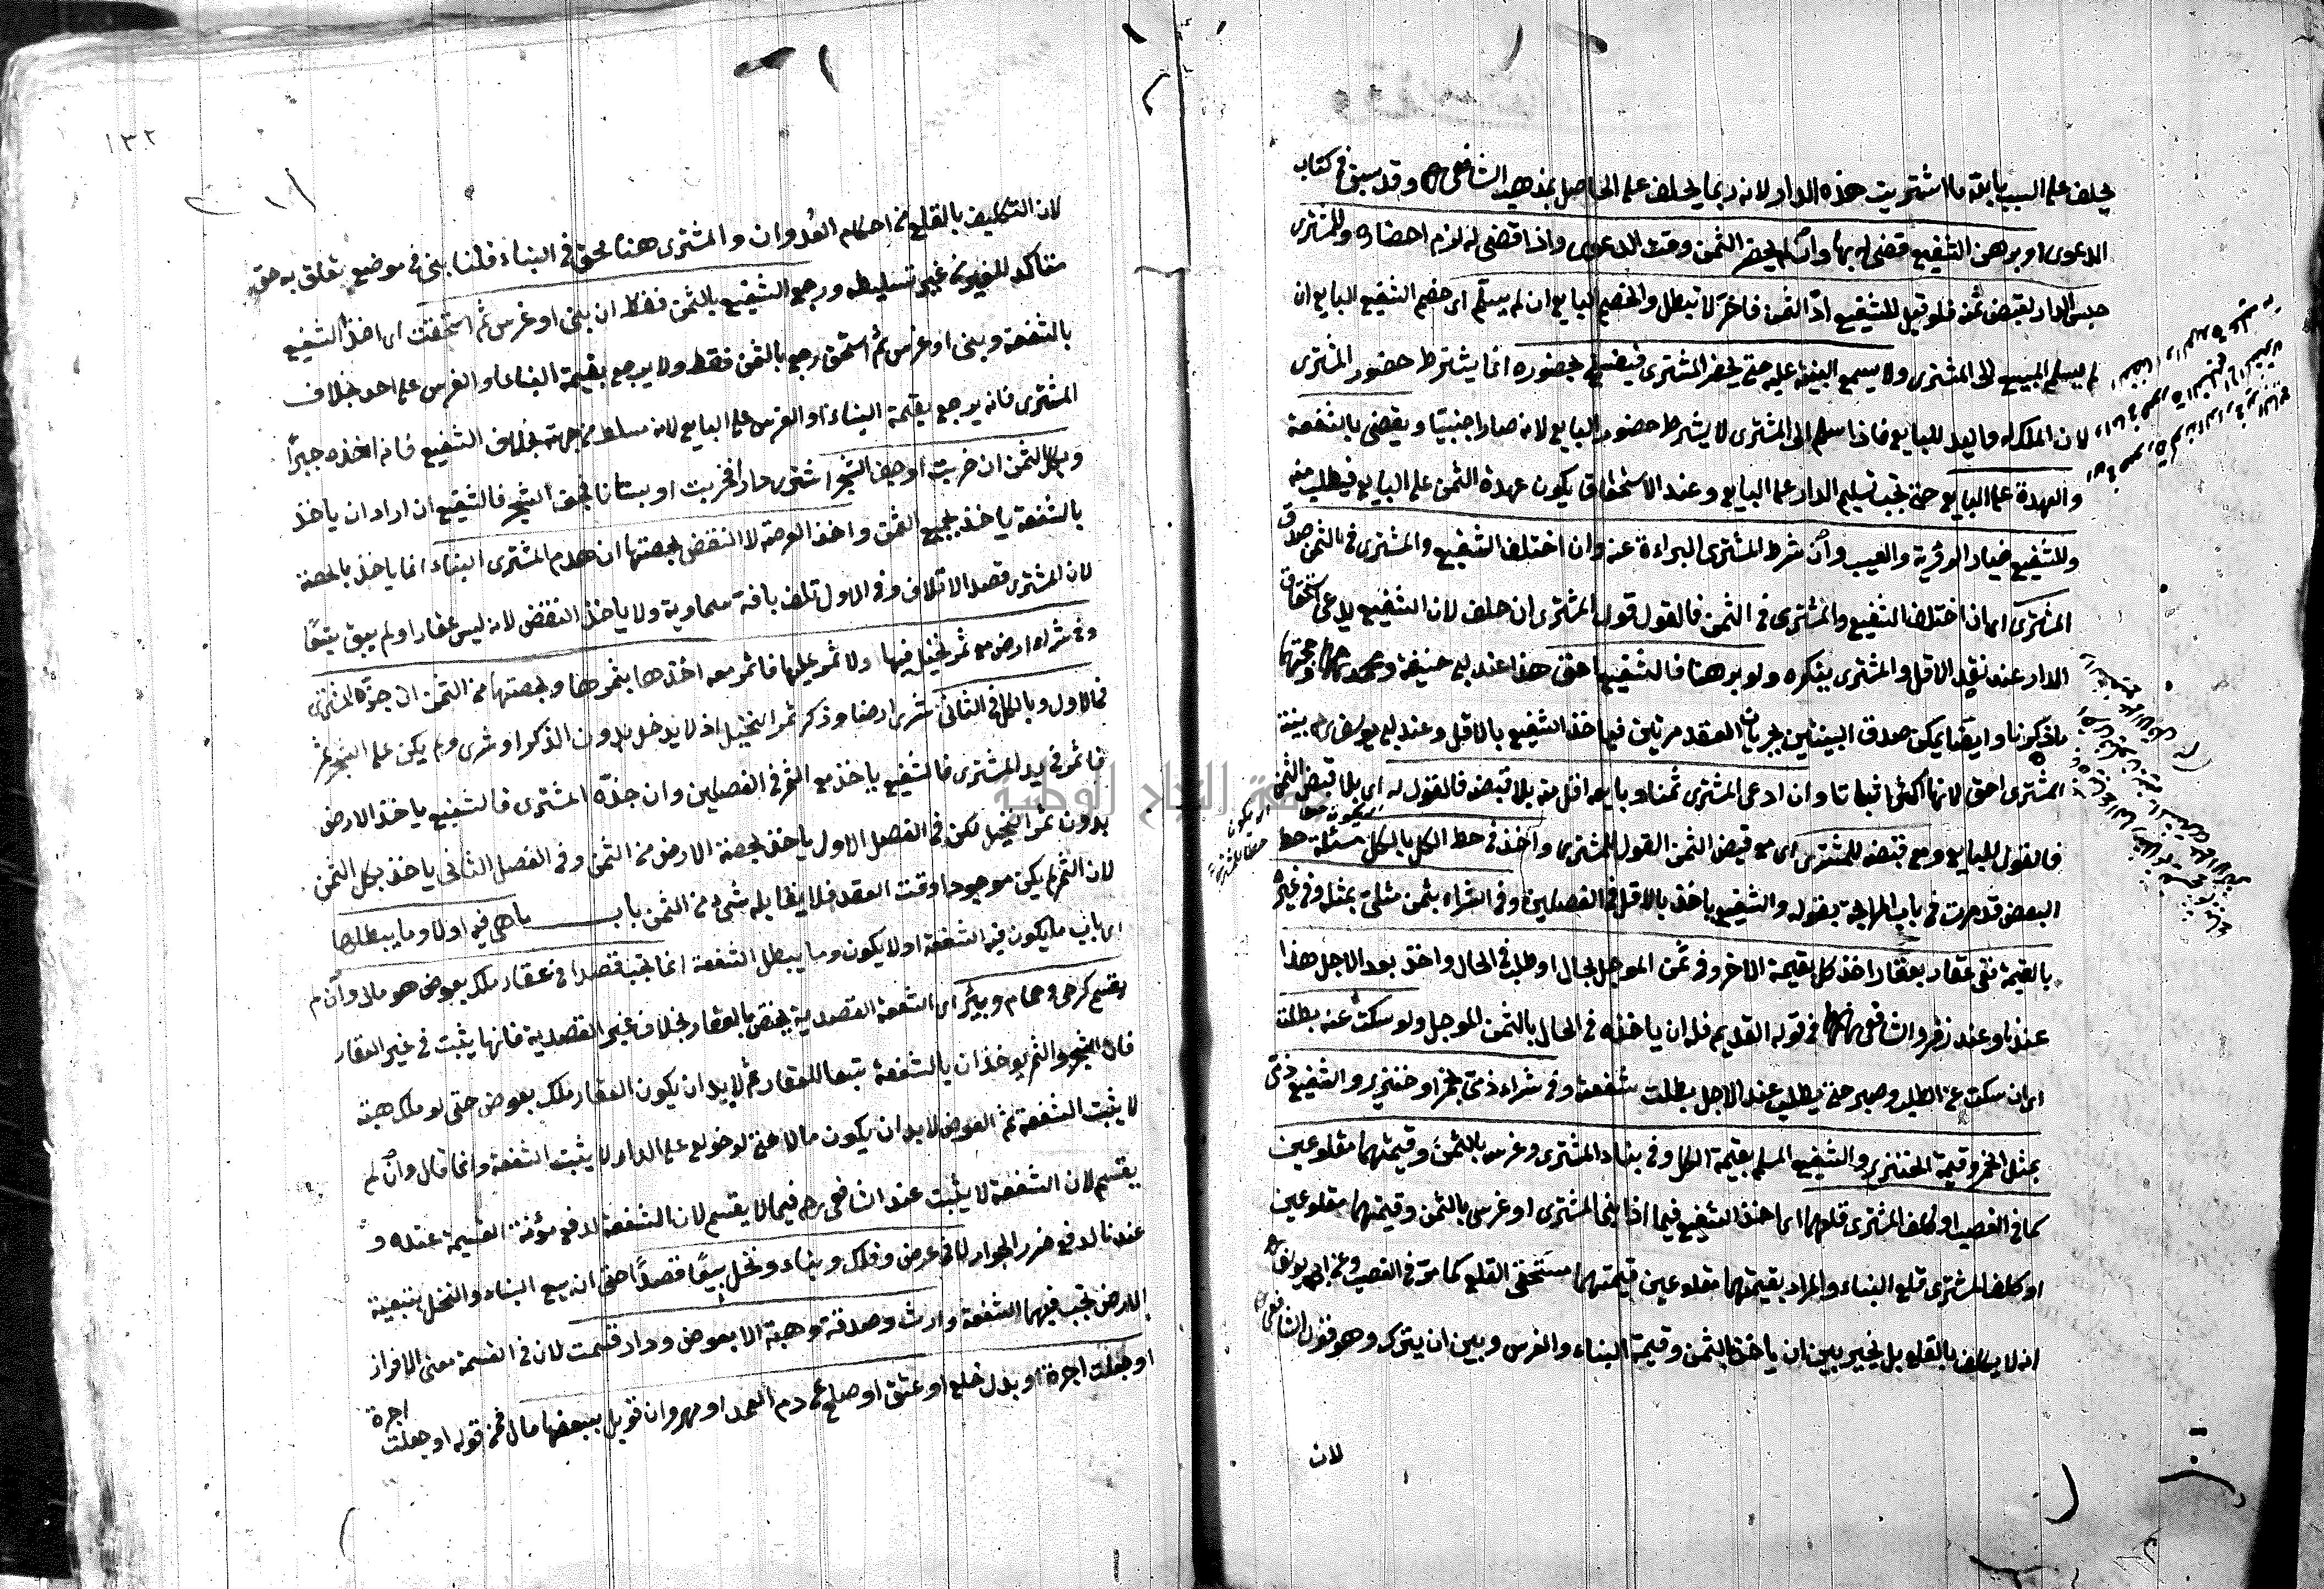 يحلف على السبب بالله ما اشتريت هذه الدار لانه ربما يحلف على الحاصل بمذهب الشافعي رح وقد سبق في كتاب
الدعوى او برهن الشفيع قضى له بها وان لم يحضر الثمن وقت الدعوى واذا قضى له لزم احضاره وللمشترى
حبس الدار لقبض ثمنه فلو قيل للشفيع ادّ الثمن فاخر لا تبطل والخصم البايع ان لم يسلّم اى خصم الشفيع البايع ان
لم يسلم المبيع الى المشترى ولا يسمع البينة عليه حتى يحضر المشترى فيفسخ بحضوره انما يشترط حضور المشترى
لان الملك له واليد للبايع فاذا سلم الى المشترى لا يشترط حضور البايع لانه صار اجنبيا ويقضى بالشفعة
والعهدة على البايع حتى تجب تسليم الدار على البايع وعند الاستحقاق يكون عهدة الثمن على البايع فيطلب منه
وللشفيع خيار الرؤية والعيب وان شرط المشترى البراءة عنه وان اختلف الشفيع والمشترى في الثمن صدق
المشترى اى اذا اختلف الشفيع والمشترى في الثمن فالقول قول المشترى ان حلف لان الشفيع يدعى استحقاق
الدار عند نقد الاقل والمشترى ينكره ولو برهنا فالشفيع احق هذا عند ابي حنيفة ومحمد رحهما وحجتهما
ما ذكرنا وايضا يمكن صدق البينتين بجريان العقد مرتين فياخذ الشفيع بالاقل وعند ابي يوسف رح بينة
المشترى احق لانها اكثر اثباتا وان ادعى المشترى ثمنا وبايعه اقل منه بلا قبضه فالقول له اى بلا قبض الثمن
فالقول للبايع ومع قبضه للمشترى اى مع قبض الثمن القول للمشترى واخذ في حط الكل بالكل مسئلة حط
البعض قد مرت في باب المرابحة بقوله والشفيع ياخذ بالاقل في الفصلين وفي الشراء بثمن مثلى بمثله وفي غيره
بالقيمة ففي عقار بعقار اخذ كل بقيمة الاخر وفي ثمن الموجل بحال او طلب في الحال واخذ بعد الاجل هذا
عندنا وعند زفر والشافعي رحهما في قوله القديم فله ان ياخذه في الحال بالثمن الموجل ولو سكت عنه بطلت
اى ان سكت عن الطلب وصبر حتى يطلب عند الاجل بطلت شفعته وفي شراء ذمى بخمر او خنزير والشفيع ذمى
بمثل الخمر وقيمة الخنزير والشفيع المسلم بقيمة الكل وفي بناء المشترى وغرسه بالثمن وقيمتهما مقلوعين
كما في الغصب او كلف المشترى قلعهما اى اخذ الشفيع فيما اذا بنى المشترى او غرس بالثمن وقيمتهما مقلوعين
او كلف المشترى قلع البناء والمراد بقيمتهما مقلوعين قيمتهما مستحقى القلع كما مر في الغصب وعن ابي يوسف رح
انه لا يكلف بالقلع بل يخير بين ان ياخذ بالثمن وقيمة البناء والغرس وبين ان يترك وهو قول الشافعي رح
لان
١٣٢
لان التكليف بالقلع من احكام العدوان والمشترى هنا محق في البناء قلنا بنى في موضع تعلق به حق
متاكد للغير من غير تسليطه ورجع الشفيع بالثمن فقط ان بنى او غرس ثم استحقت اى اخذ الشفيع
بالشفعة وبنى او غرس ثم استحق رجع بالثمن فقط ولا يرجع بقيمة البناء او الغرس على احد بخلاف
المشترى فانه يرجع بقيمة البناء او الغرس على البايع لانه مسلط من جهته بخلاف الشفيع فانه اخذه جبرًا
وبكل الثمن ان خربت او جف الشجر اشترى دارا فخربت او بستانا فجف الشجر فالشفيع ان اراد ان ياخذ
بالشفعة ياخذ بجميع الثمن واخذ العرصة لا النقض بحصتها ان هدم المشترى البناء انما ياخذ بالحصة
لان المشترى قصد الاتلاف وفي الاول تلف بافة سماوية ولا ياخذ النقض لانه ليس عقارا ولم يبق تبعًا
وفي شراء ارض مع ثمر نخيل فيها ولا ثمر عليها فاثمر معه اخذها بثمرها وبحصتها من الثمن ان جذه المشترى
في الاول وبالكل في الثاني شرى ارضا وذكر ثمر النخيل اذ لا يدخل بدون الذكر او شرى ولم يكن على الشجر ثمر
فاثمر في يد المشترى فالشفيع ياخذ مع الثمر في الفصلين وان جذه المشترى فالشفيع ياخذ الارض
بدون ثمر النخيل لكن في الفصل الاول ياخذ بحصة الارض من الثمن وفي الفصل الثاني ياخذ بكل الثمن
لان الثمر لم يكن موجودا وقت العقد فلا يقابله شيء من الثمن باب ما هى فيه او لا وما يبطلها
اى باب ما يكون فيه الشفعة او لا يكون وما يبطل الشفعة انما تجب قصدا في عقار ملك بعوض هو مال وان لم
يقسم كرحى وحمام وبئر اى الشفعة القصدية يختص بالعقار بخلاف غير القصدية فانها يثبت في غير العقار
فان الشجر والثمر يوخذان بالشفعة تبعا للعقار ثم لا بد ان يكون العقار ملك بعوض حتى لو ملك هبة
لا يثبت الشفعة ثم العوض لا بد ان يكون مالا حتى لو خولع على الدار لا يثبت الشفعة وانما قال وان لم
يقسم لان الشفعة لا يثبت عند الشافعي رح فيما لا يقسم لان الشفعة لدفع مؤنة القسمة عنده و
عندنا لدفع ضرر الجوار لا في عرض وفلك وبناء ونخل بيعًا قصدًا حتى ان بيع البناء والنخل بتبعية
الارض تجب فيهما الشفعة وارث وصدقة وهبة الا بعوض ودار قسمت لان في القسمة معنى الافراز
او جعلت اجرة او بدل خلع او عتق او صلح عن دم العمد او مهر وان قوبل ببعضها مال فمن قوله او جعلت
اجرة